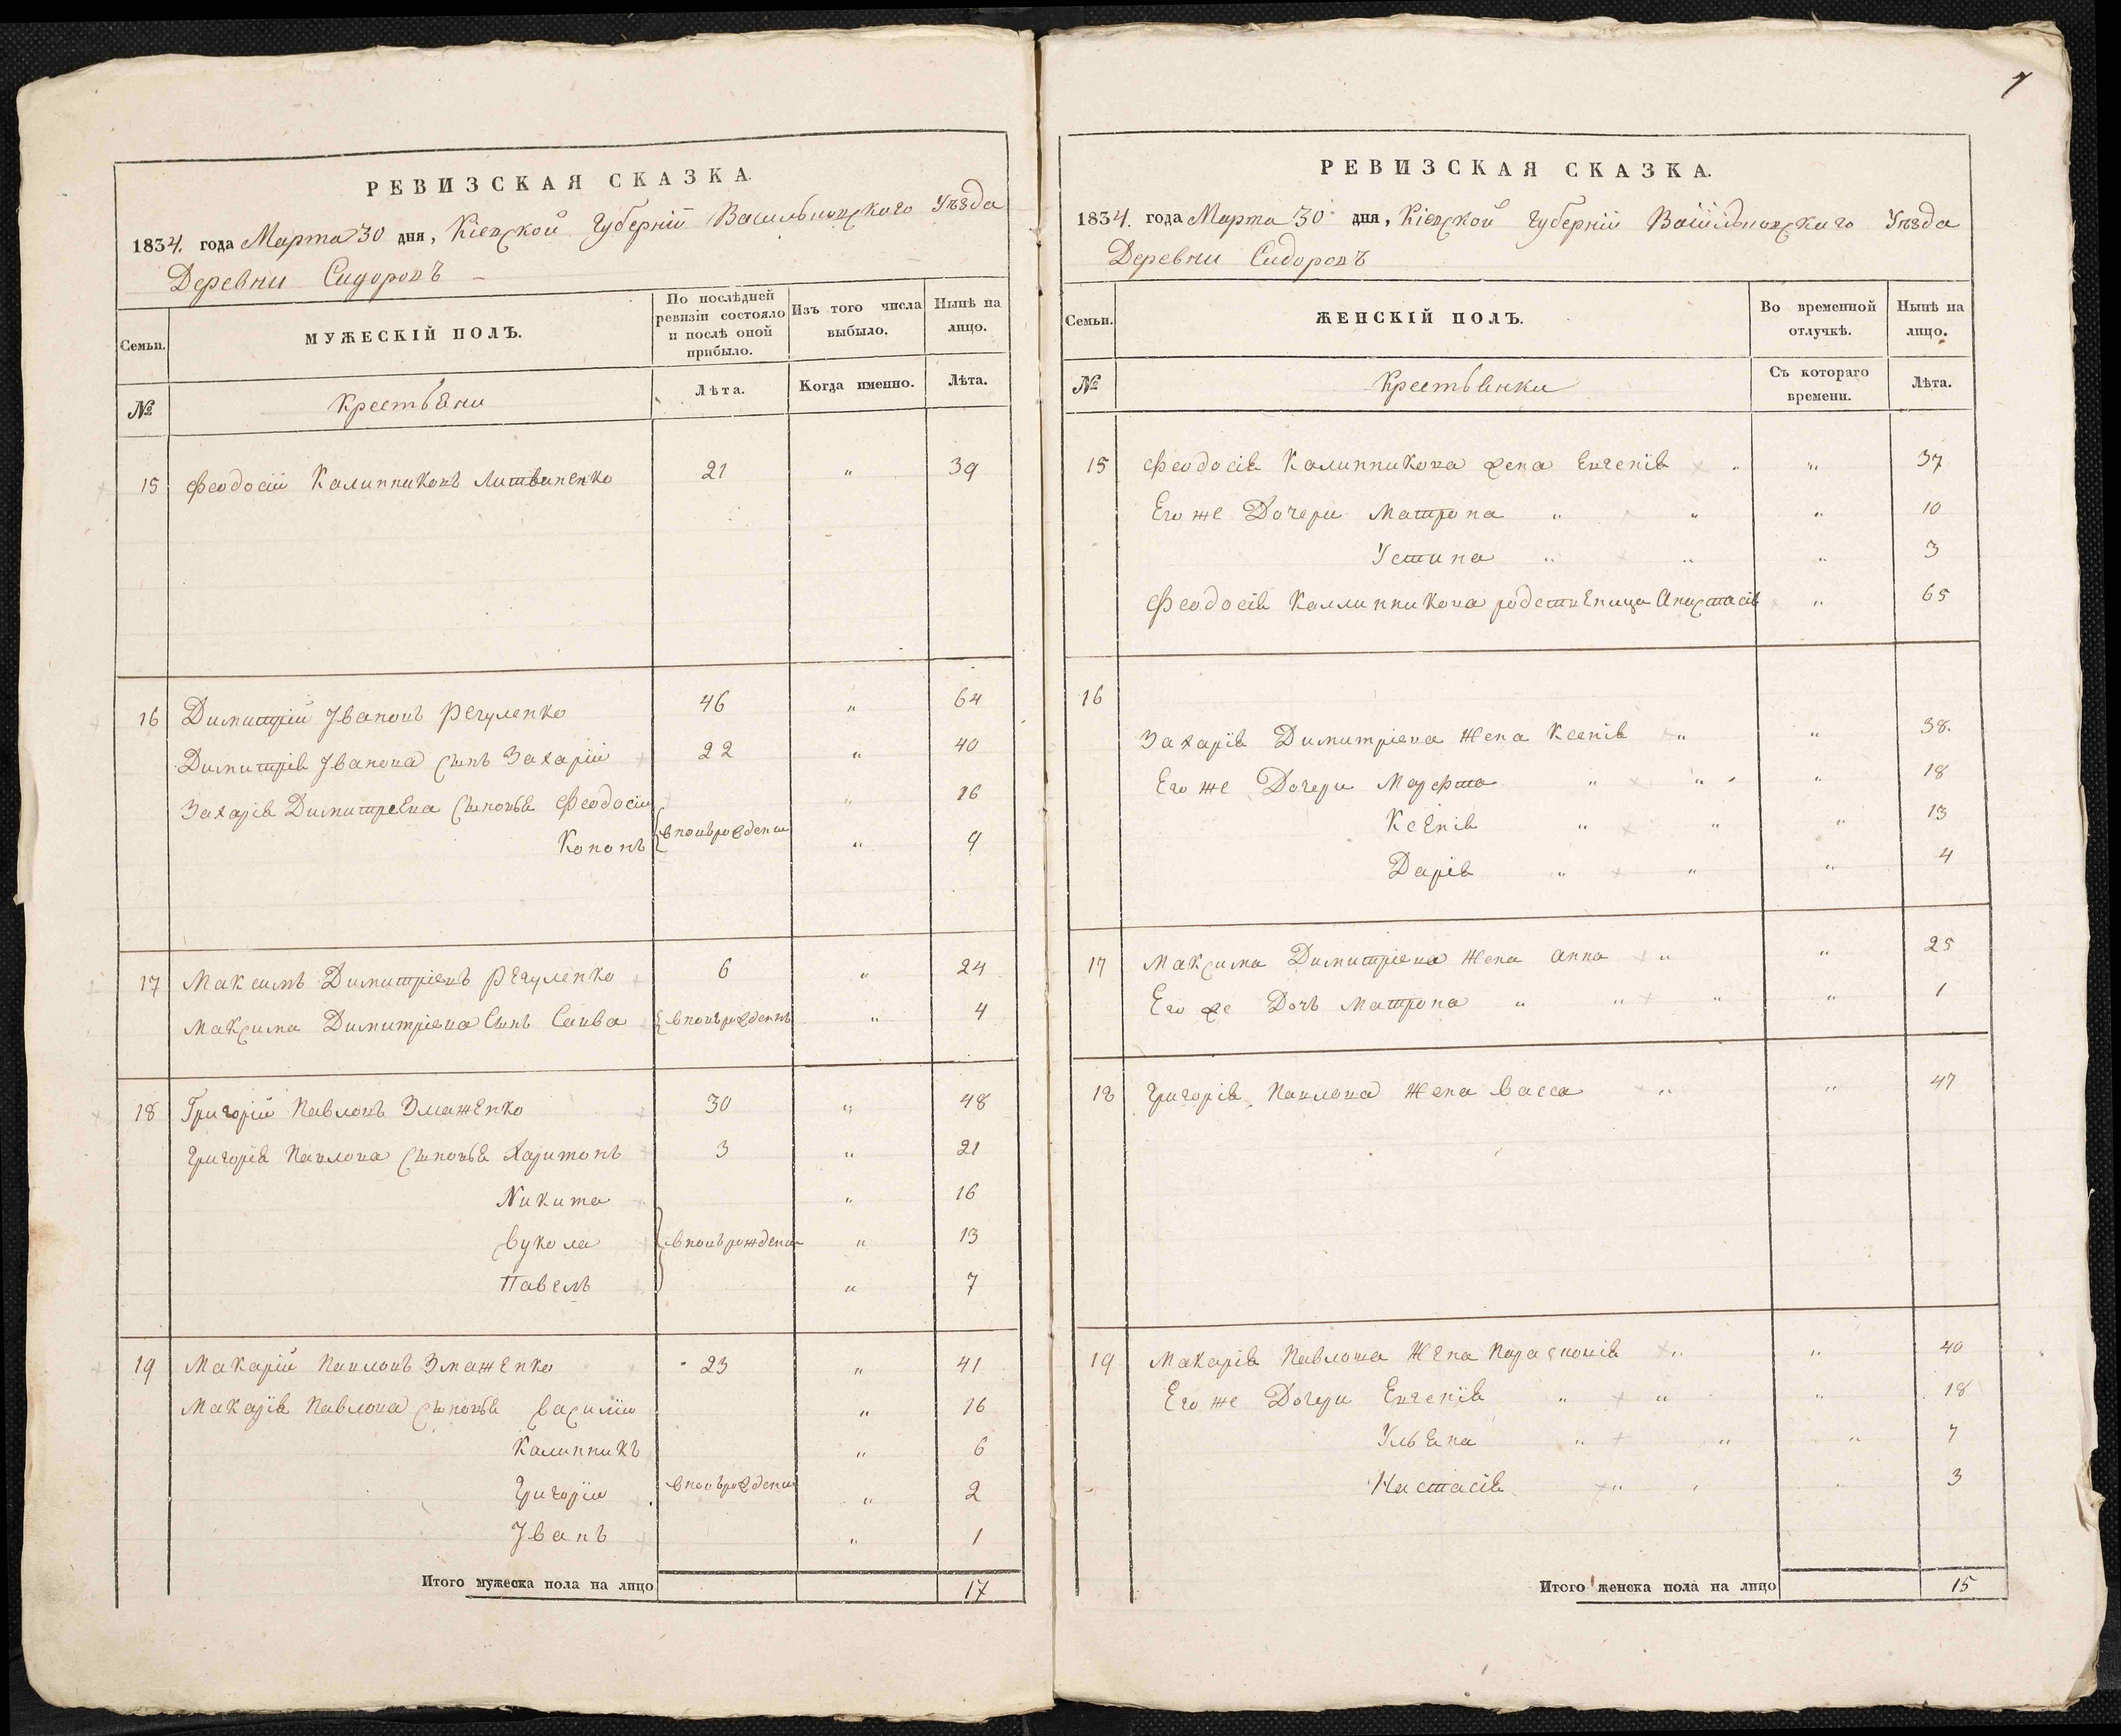 РЕВИЗСКАЯ СКАЗКА.
1834. года Марта 30 дня, Кіевской Губерніи Васильковскаго Уѣзда
Деревни Сидоровъ
Семьи.
МУЖЕСКІЙ ПОЛЪ.
По послѣдней ревизіи состояло и послѣ оной прибыло.
Изъ того числа выбыло.
Нынѣ на лицо.
№
Крестьяни
Лѣта.
Когда именно.
Лѣта.
15 Феодосій Калинниковъ Литвиненко 21 " 39
16 Димитрій Івановъ Регуленко 46 " 64
Димитрія Іванова сынъ Захарій 22 " 40
Захарія Димитріева сыновья Феодосій " 16
Кононъ вновърождени " 9
17 Максимъ Димитріевъ Регуленко 6 " 24
Максима Димитріева Сынъ Савва вновърожденъ " 4
18 Григорій Павловъ Змаженко 30 " 48
Григорія Павлова сыновья Харитонъ 3 " 21
Никита " 16
Вукола вновърождени " 13
Павелъ " 7
19 Макарій Павловъ Змаженко 23 " 41
Макарія Павлова сыновья Василій " 16
Калинникъ " 6
Григорій вновърождени " 2
Іванъ " 1
Итого мужеска пола на лицо 17
7
РЕВИЗСКАЯ СКАЗКА.
1834. года Марта 30 дня, Кіевской Губерніи Васильковскаго Уѣзда
Деревни Сидоровъ
Семьи.
ЖЕНСКІЙ ПОЛЪ.
Во временной отлучкѣ.
Нынѣ на лицо.
№
Крестьянки
Съ котораго времени.
Лѣта.
15 Феодосія Калинникова жена Евгенія " " 37
Его же Дочери Матрона " " " 10
Устина " " " 3
Феодосія Каллинникова родственица Анастасія " 65
16
Захарія Димитріева Жена Ксенія " " 38.
Его же Дочери Марфта " " " 18
Ксенія " " " 13
Дарія " " " 4
17 Максима Димитріева Жена Анна " " 25
Его же Дочь Матрона " " " " 1
18 Григорія Павлова Жена Васса " " 47
19 Макарія Павлова Жена Парасковія " " 40
Его же Дочери Евгенія " " " 18
Ульяна " " " 7
Настасія " " 3
Итого женска пола на лицо 15